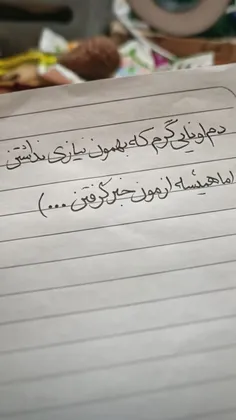 دم اونایی گرم که بهمون نیازی نداشتن
اما همیشه ازمون خبر گرفتن ...)